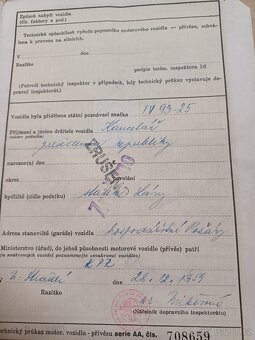 Způsob nabytí vozidla
(čís. faktury a pod.)
Technická způsobilost výše popsaného motorového vozidla — přívěsu, schvá-
lena k provozu na silnicích.
V dne
Razítko
podpis techn. inspektora DI
(Potvrdí technický inspektor v případech, kdy technický průkaz vystavuje do-
pravní inspektorát)
Vozidlu byla přidělena státní poznávací značka IV 93-25
Příjmení a jméno držitele vozidla Kancelář
presidenta republiky
ZRUŠENO
narozen(a) dne
okres povolání
bydliště (sídlo podniku) Lány
Adresa stanoviště (garáže) vozidla hospodářství Požáry
Ministerstvo (úřad), do jehož působnosti motorové vozidlo (přívěs) patří
KPR
dne 28. 12. 1959
Razítko
(Náčelník dopravního inspektorátu)
Technický průkaz motor. vozidla - přívěsu serie AA, čís. 708659